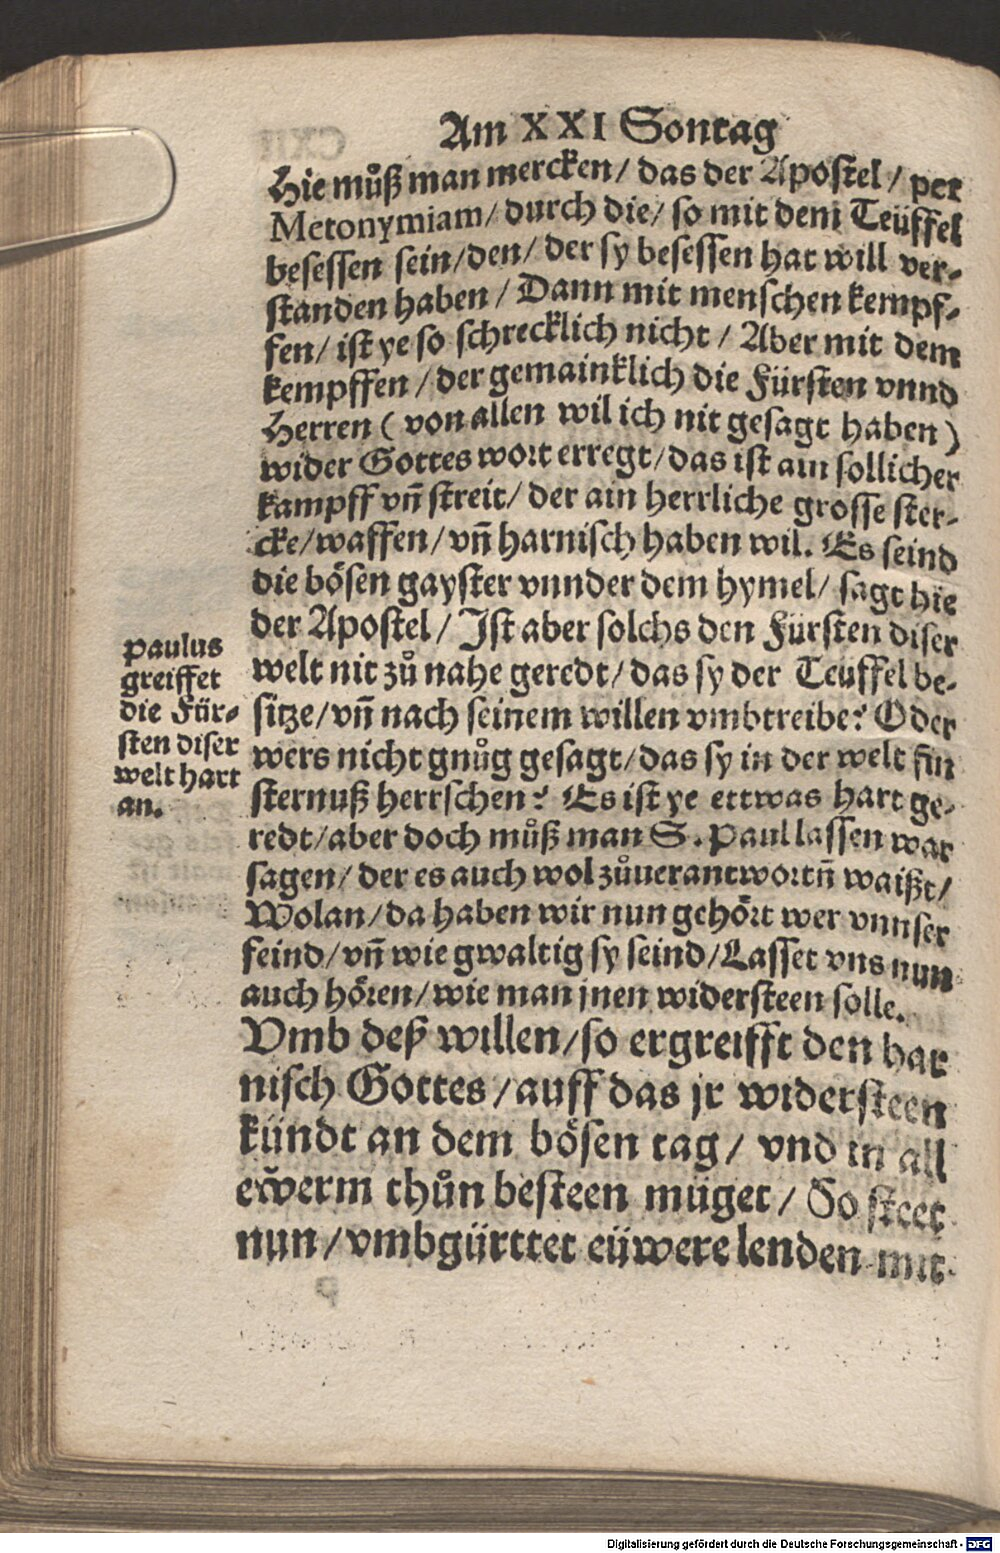 Am XXI Sontag
Hie muͦß man mercken / das der Apostel / per
Metonymiam / durch die / so mit dem Teüffel
besessen sein / den / der sy besessen hat will ver-
standen haben / Dann mit menschen kempf-
fen / ist ye so schrecklich nicht / Aber mit dem
kempffen / der gemainklich die Fürsten vnnd
Herren ( von allen wil ich nit gesagt haben )
wider Gottes wort erregt / das ist ain sollicher
kampff vñ streit / der ain herrliche grosse ster-
cke / waffen / vñ harnisch haben wil. Es seind
die bösen gayster vnnder dem hymel / sagt hie
der Apostel / Ist aber solchs den Fürsten diser
welt nit zuͦ nahe geredt / das sy der Teüffel be-
sitze / vñ nach seinem willen vmbtreibe? Oder
wers nicht gnuͦg gesagt / das sy in der welt fin
sternuß herrschen? Es ist ye ettwas hart ge-
redt / aber doch muͦß man S. Paul lassen war
sagen / der es auch wol zuͦuerantwortñ waißt /
Wolan / da haben wir nun gehört wer vnnser
feind / vñ wie gwaltig sy seind / Lasset vns nun
auch hören / wie man jnen widersteen solle.
Vmb deß willen / so ergreifft den har
nisch Gottes / auff das jr widersteen
kündt an dem bösen tag / vnd in all
eẅerm thuͦn besteen müget / So steet
nun / vmbgürttet eüwere lenden mit
Paulus
greiffet
die Für-
sten diser
welt hart
an.
Digitalisierung gefördert durch die Deutsche Forschungsgemeinschaft - DFG